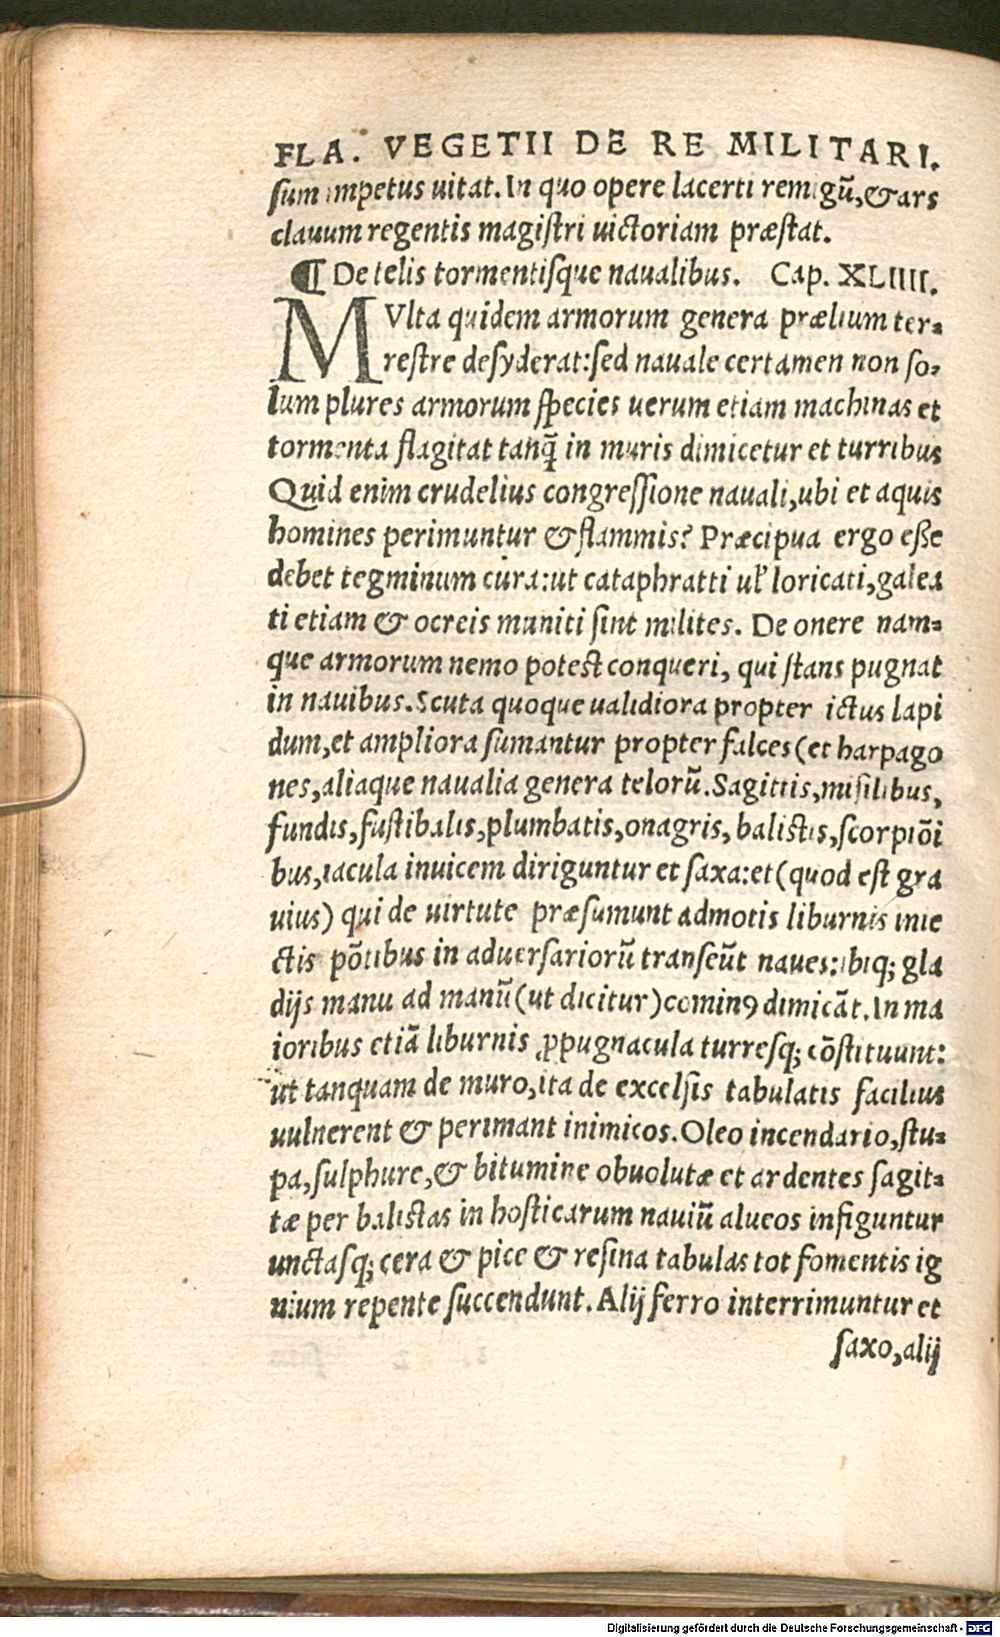 FLA. VEGETII DE RE MILITARI.
sum impetus uitat. In quo opere lacerti remigū, & ars
clauum regentis magistri uictoriam præstat.
¶ De telis tormentisque naualibus. Cap. XLIIII.
MVlta quidem armorum genera prælium ter-
restre desyderat: sed nauale certamen non so-
lum plures armorum species uerum etiam machinas et
tormenta flagitat tanq̄ in muris dimicetur et turribus
Quid enim crudelius congressione nauali, ubi et aquis
homines perimuntur & flammis? Præcipua ergo esse
debet tegminum cura: ut cataphratti ul' loricati, galea
ti etiam & ocreis muniti sint milites. De onere nam-
que armorum nemo potest conqueri, qui stans pugnat
in nauibus. Scuta quoque ualidiora propter ictus lapi
dum, et ampliora sumantur propter falces (et harpago
nes, aliaque naualia genera telorū. Sagittis, misilibus,
fundis, fustibalis, plumbatis, onagris, balistis, scorpiōi
bus, iacula inuicem diriguntur et saxa: et (quod est gra
uius) qui de uirtute præsumunt admotis liburnis inie
ctis pōtibus in aduersariorū transeūt naues: ibiq; gla
dijs manu ad manū (ut dicitur) cominꝰ dimicāt. In ma
ioribus etiā liburnis ꝓpugnacula turresq; cōstituunt:
ut tanquam de muro, ita de excelsis tabulatis facilius
uulnerent & perimant inimicos. Oleo incendario, stu-
pa, sulphure, & bitumine obuolutæ et ardentes sagit-
tæ per balistas in hosticarum nauiū alueos infiguntur
unctasq; cera & pice & resina tabulas tot fomentis ig
nium repente succendunt. Alij ferro interrimuntur et
saxo, alij
Digitalisierung gefördert durch die Deutsche Forschungsgemeinschaft - DFG